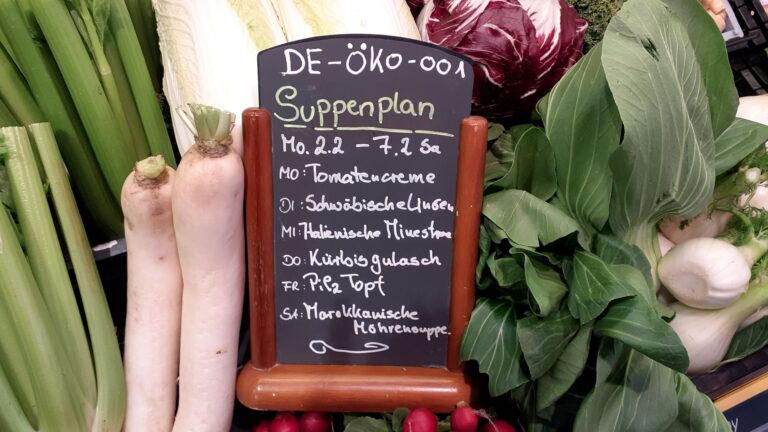 DE-ÖKO-001
Suppenplan
Mo. 2.2 - 7.2 Sa
MO: Tomatencreme
DI: Schwäbische Linsen
MI: Italienische Minestrone
DO: Kürbisgulasch
FR: Pilz Topf
SA: Marokkanische
Möhrensuppe.